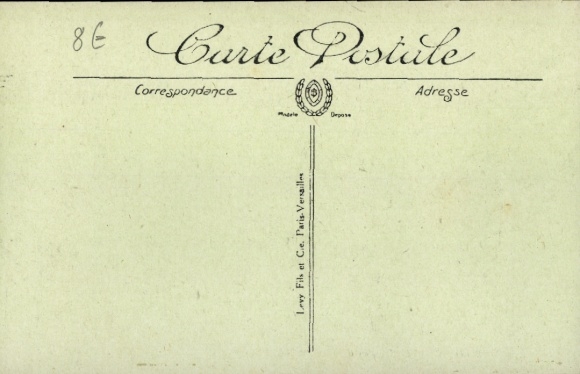 8€
Carte Postale
Correspondance
Adresse
Modèle Déposé
Levy Fils et Cie. Paris-Versailles